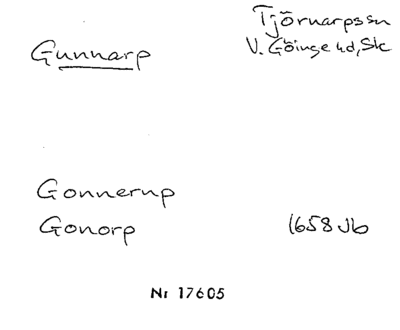 Gunnarp
Tjörnarps sn
V. Göinge hd, Sk
Gonnerup
Gonorp 1658 Jb
Nr 17605